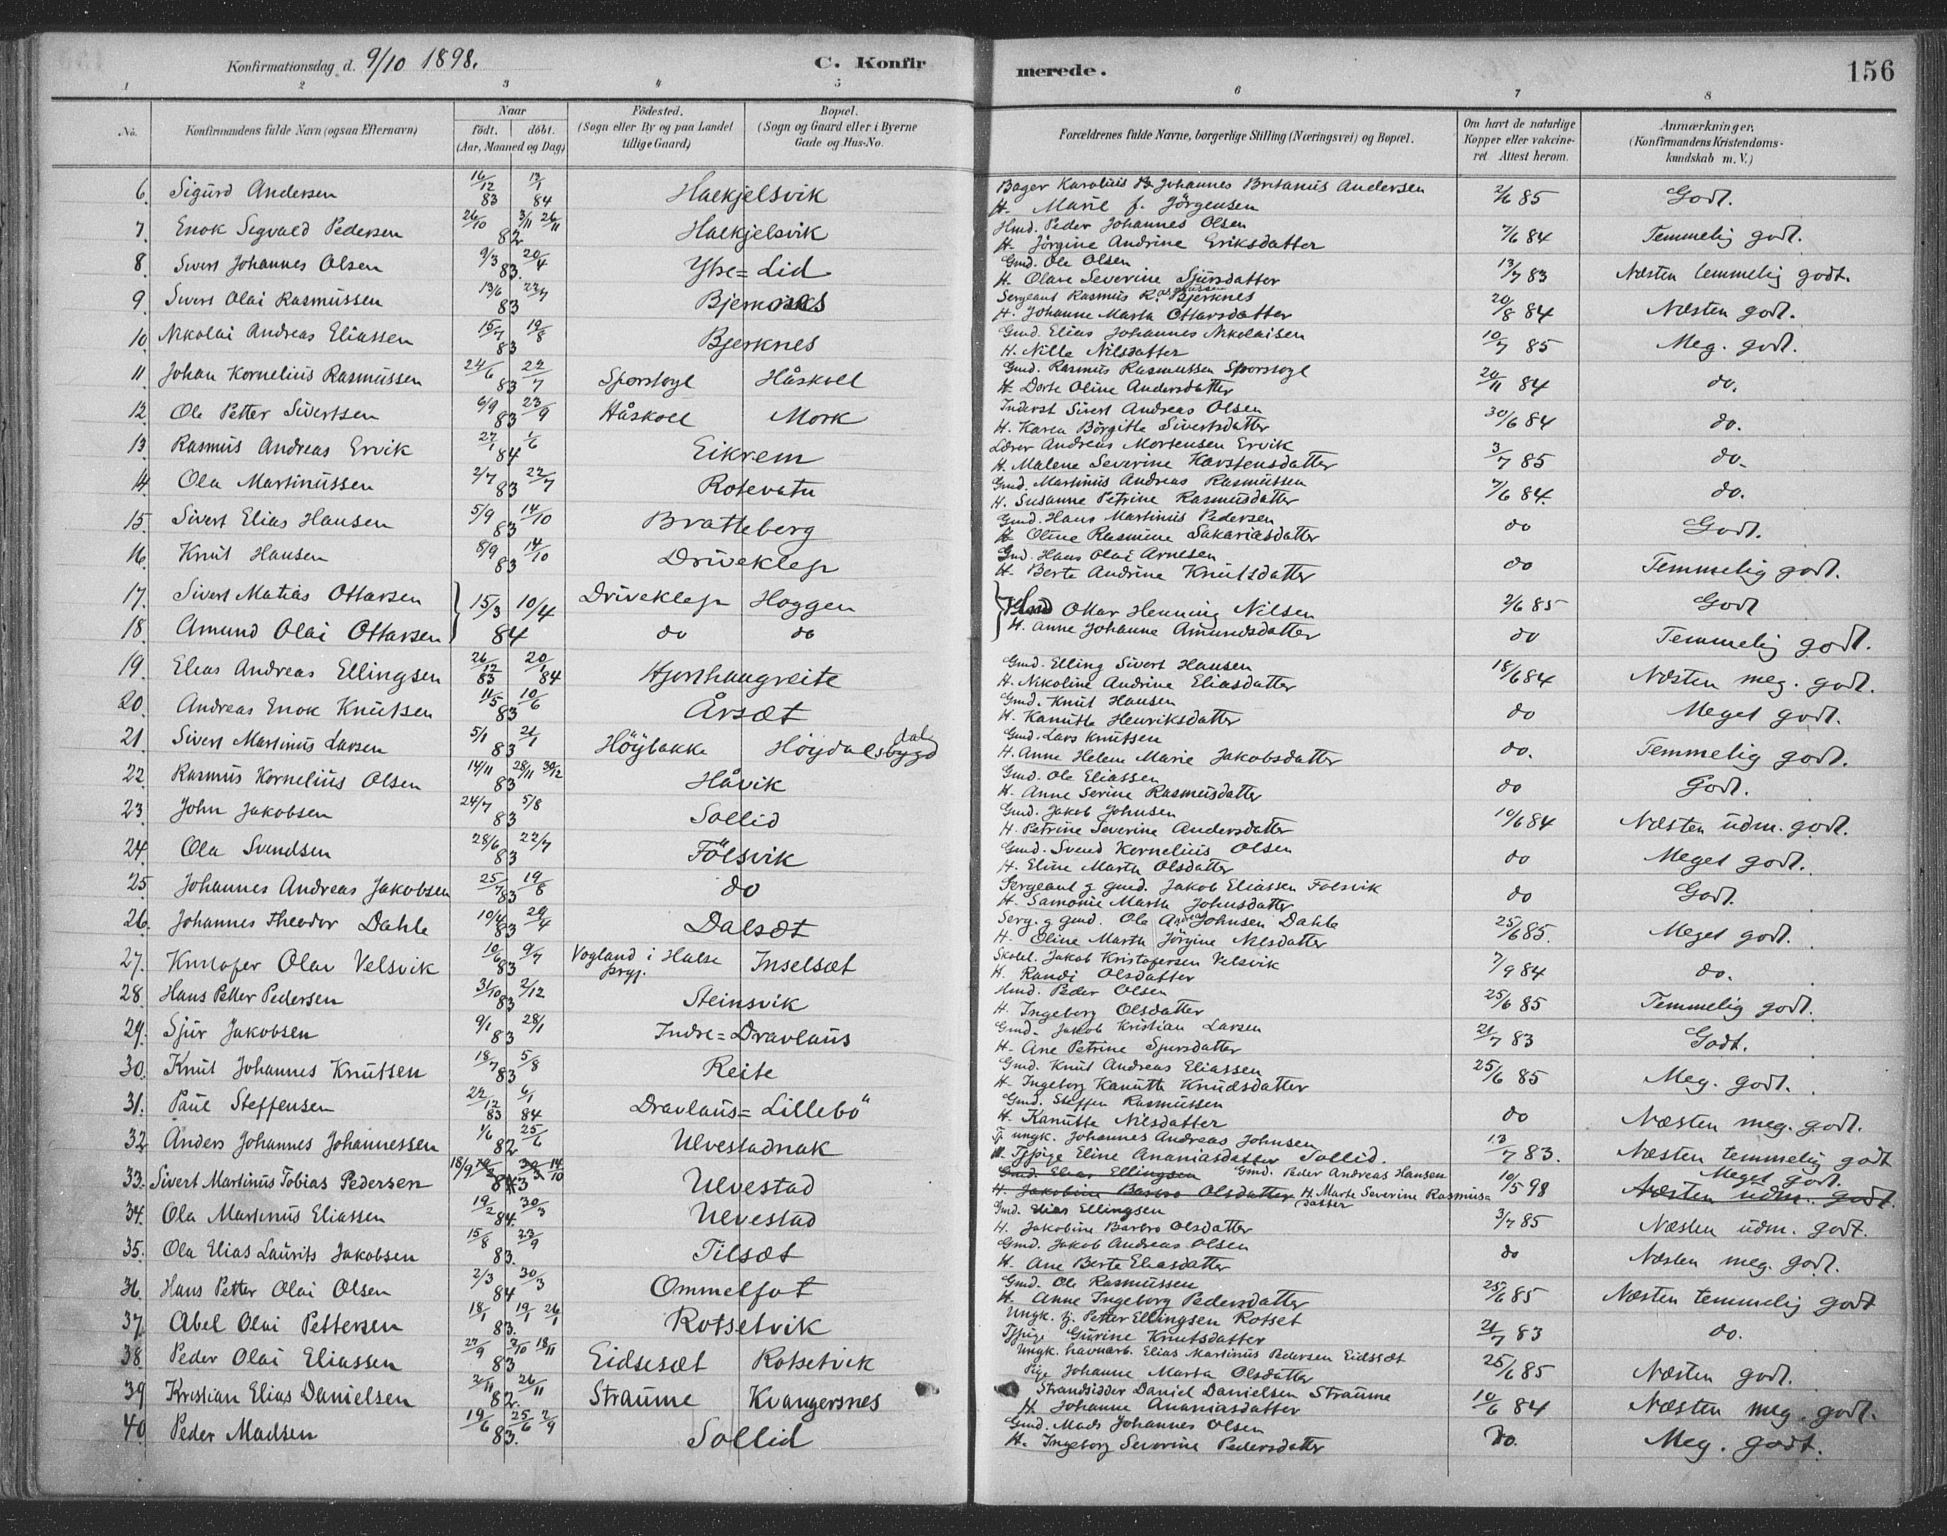 Konfirmationsdag d. 9/10 1898.
C. Konfirmerede.
156
1 2 3 4 5 6 7 8
No. Konfirmandens fulde Navn (ogsaa Efternavn)
Naar födt. döbt. (Aar, Maaned og Dag)
Födested. (Sogn eller By og paa Landet tillige Gaard)
Bopæl. (Sogn og Gaard eller i Byerne Gade og Hus-No.
Forældrenes fulde Navne, borgerlige Stilling (Næringsvei) og Bopæl.
Om havt de naturlige Kopper eller vakcineret Attest herom.
Anmærkninger. (Konfirmandens Kristendomskundskab m. V.)
6. Sigurd Andersen 16/12 83 13/1 84 Haekjelsvik Bager Karolius Johannes Britanus Andersen 2/6 85 Godt.
H. Marie f. Jörgensen
7. Enok Segvald Pedersen 26/10 3/11 26/11 82 Haekjelsvik Hmd. Peder Johannes Olsen 7/6 84 Temmelig godt.
H. Jörgine Andrine Eriksdatter
8 Sivert Johannes Olsen 9/3 20/4 83. Ytre=Lid Gmd. Ole Olsen 13/7 83 Næsten temmelig godt.
H. Olave Severine Sjursdatter
9. Sivert Olai Rasmussen 13/6 22/7 83 Bjerknes Sergeant Rasmus Rasmussen Bjerknes 20/8 84 Næsten godt.
H. Johanne Marta Ottarsdatter
10. Nikolai Andreas Eliassen 15/7 19/8 83 Bjerknes Gmd. Elias Johannes Nikolaisen 10/7 85 Meg. godt.
H. Nille Nilsdatter
11 Johan Kornelius Rasmussen 24/6 22/7 83 Sporstøyl Håskoll Gmd. Rasmus Rasmussen Sporstøyl 20/11 84 do.
H. Dorte Oline Andersdatter
12. Ole Petter Sivertsen 6/9 23/9 83 Håskoll Mork Inderst Sivert Andreas Olsen 30/6 84 do.
H. Karen Börgitte Sivertsdatter
13. Rasmus Andreas Ervik 27/1 1/6 84 Eikrem Lærer Andreas Mortensen Ervik 3/7 85 do.
H. Malene Severine Karstensdatter
14. Ola Martinussen 2/7 22/7 83 Rotevatn Gmd. Martinus Andreas Rasmussen 7/6 84. do.
H. Susanne Petrine Rasmusdatter
15. Sivert Elias Hansen 5/9 14/10 83 Bratteberg Gmd. Hans Martinus Pedersen do Godt.
H. Oline Rasmine Sakariasdatter
16. Knut Hansen 8/9 14/10 83 Driveklep Gmd. Hans Olai Arnesen do Temmelig godt.
H. Berte Andrine Knutsdatter
17. Sivert Matias Ottarsen 15/3 10/4 Driveklep Hoggen Ottar Henning Nilsen 2/6 85 Godt
18. Amund Olai Ottarsen 84 do do H. Anne Johanne Amundsdatter do Temmelig godt.
19. Elias Andreas Ellingsen 26/12 83 20/1 84 Hjorthaugreite Gmd. Elling Sivert Hansen 18/6 84 Næsten meg. godt.
H. Nikoline Andrine Eliasdatter
20. Andreas Enok Knutsen 11/5 10/6 83 Årsæt Gmd. Knut Hansen do Meget godt.
H. Kanutte Henriksdatter
21. Sivert Martinus Larsen 5/1 21/1 83 Höybakke Höydalsbygd Gmd. Lars Knutsen do. Temmelig godt.
H. Anne Helene Marie Jakobsdatter
22. Rasmus Kornelius Olsen 14/11 28/11 30/12 83 Håvik Gmd. Ole Eliassen do Godt.
H. Anne Serine Rasmusdatter
23. John Jakobsen 24/7 5/8 83 Sollid Gmd. Jakob Johnsen 10/6 84 Næsten udm. godt.
H. Petrine Severine Andersdatter
24. Ola Svendsen 28/6 22/7 83 Fölsvik Gmd. Svend Kornelius Olsen do Meget godt.
H. Eline Marta Olsdatter
25 Johannes Andreas Jakobsen 25/7 19/8 83 do Sergeant g gmd. Jakob Eliassen Folsvik do Godt.
H. Samonie Marta Johnsdatter
26. Johannes Theodor Dahle 10/4 29/4 83 Dalsæt Serg. g gmd. Ole Andreas Johnsen Dahle 25/6 85. Meget godt.
H. Oline Marta Jörgine Nilsdatter
27. Kristofer Olav Velsvik 10/6 9/7 83 Vogland i Halse prgj. Inselsæt Skolel. Jakob Kristofersen Velsvik 7/9 84 do.
H. Randi Olsdatter
28. Hans Petter Pedersen 31/10 2/12 83 Steinsvik Hmd. Peder Olsen 25/6 85 Temmelig godt.
H. Ingeborg Olsdatter
29. Sjur Jakobsen 9/1 28/1 83 Indre=Dravlaus Gmd. Jakob Kristian Larsen 21/7 83 Godt.
H. Ane Petrine Sjursdatter
30. Knut Johannes Knutsen 18/7 5/8 83 Reite Gmd. Knut Andreas Eliassen 25/6 85 Meg. godt.
H. Ingeborg Kanutte Knudsdatter
31. Paul Steffensen 22/12 83 6/1 84 Dravlaus=Lillebö Gmd. Steffen Rasmussen do Næsten meg. godt.
H. Kanutte Nilsdatter
32. Anders Johannes Johannessen 1/6 25/6 82 Ulvestadnak F. ungk. Johannes Andreas Johnsen 13/7 83. Næsten temmelig godt
M. Tjpige Eline Ananiasdatter Sollid.
33. Sivert Martinus Tobias Pedersen 18/9 14/10 83 Ulvestad Gmd. Elias Ellingsen Gmd. Peder Andreas Hansen 10/5 98 Meget godt.
H. Jakobine Barbro Olsdatter H. Marte Severine Rasmusdatter Næsten udm. godt.
34. Ola Martinus Eliassen 19/2 30/3 84. Ulvestad Gmd. Elias Ellingsen 3/7 85 Næsten udm. godt.
H. Jakobine Barbro Olsdatter
35. Ola Elias Laurits Jakobsen 15/8 23/9 83. Tilsæt Gmd. Jakob Andreas Olsen do Næsten meg. godt.
H. Ane Berte Eliasdatter
36. Hans Petter Olai Olsen 2/3 30/3 84 Ommelfot Gmd. Ole Rasmussen 25/6 85 Næsten temmelig godt
H. Anne Ingeborg Pedersdatter
37. Abel Olai Pettersen 18/1 19/1 26/1 83. Rotsetvik Ungk. Petter Ellingsen Rotset 21/7 83 do.
Tjpige Gurine Knutsdatter
38. Peder Olai Eliassen 27/9 2/10 18/11 83 Eidsesæt Rotsetvik Ungk. havnarb. Elias Martinus Pedersen Eidssæt 25/6 85 Næsten godt.
Pige Johanne Marta Olsdatter
39 Kristian Elias Danielsen 2/11 26/11 82. Straume Kvangersnes Strandsidder Daniel Danielsen Straume 10/6 84 Næsten meg. godt.
H. Johanne Ananiasdatter
40 Peder Madsen 19/6 25/6 2/9 83. Sollid Gmd. Mads Johannes Olsen Do. Meg. godt.
H. Ingeborg Severine Pedersdatter